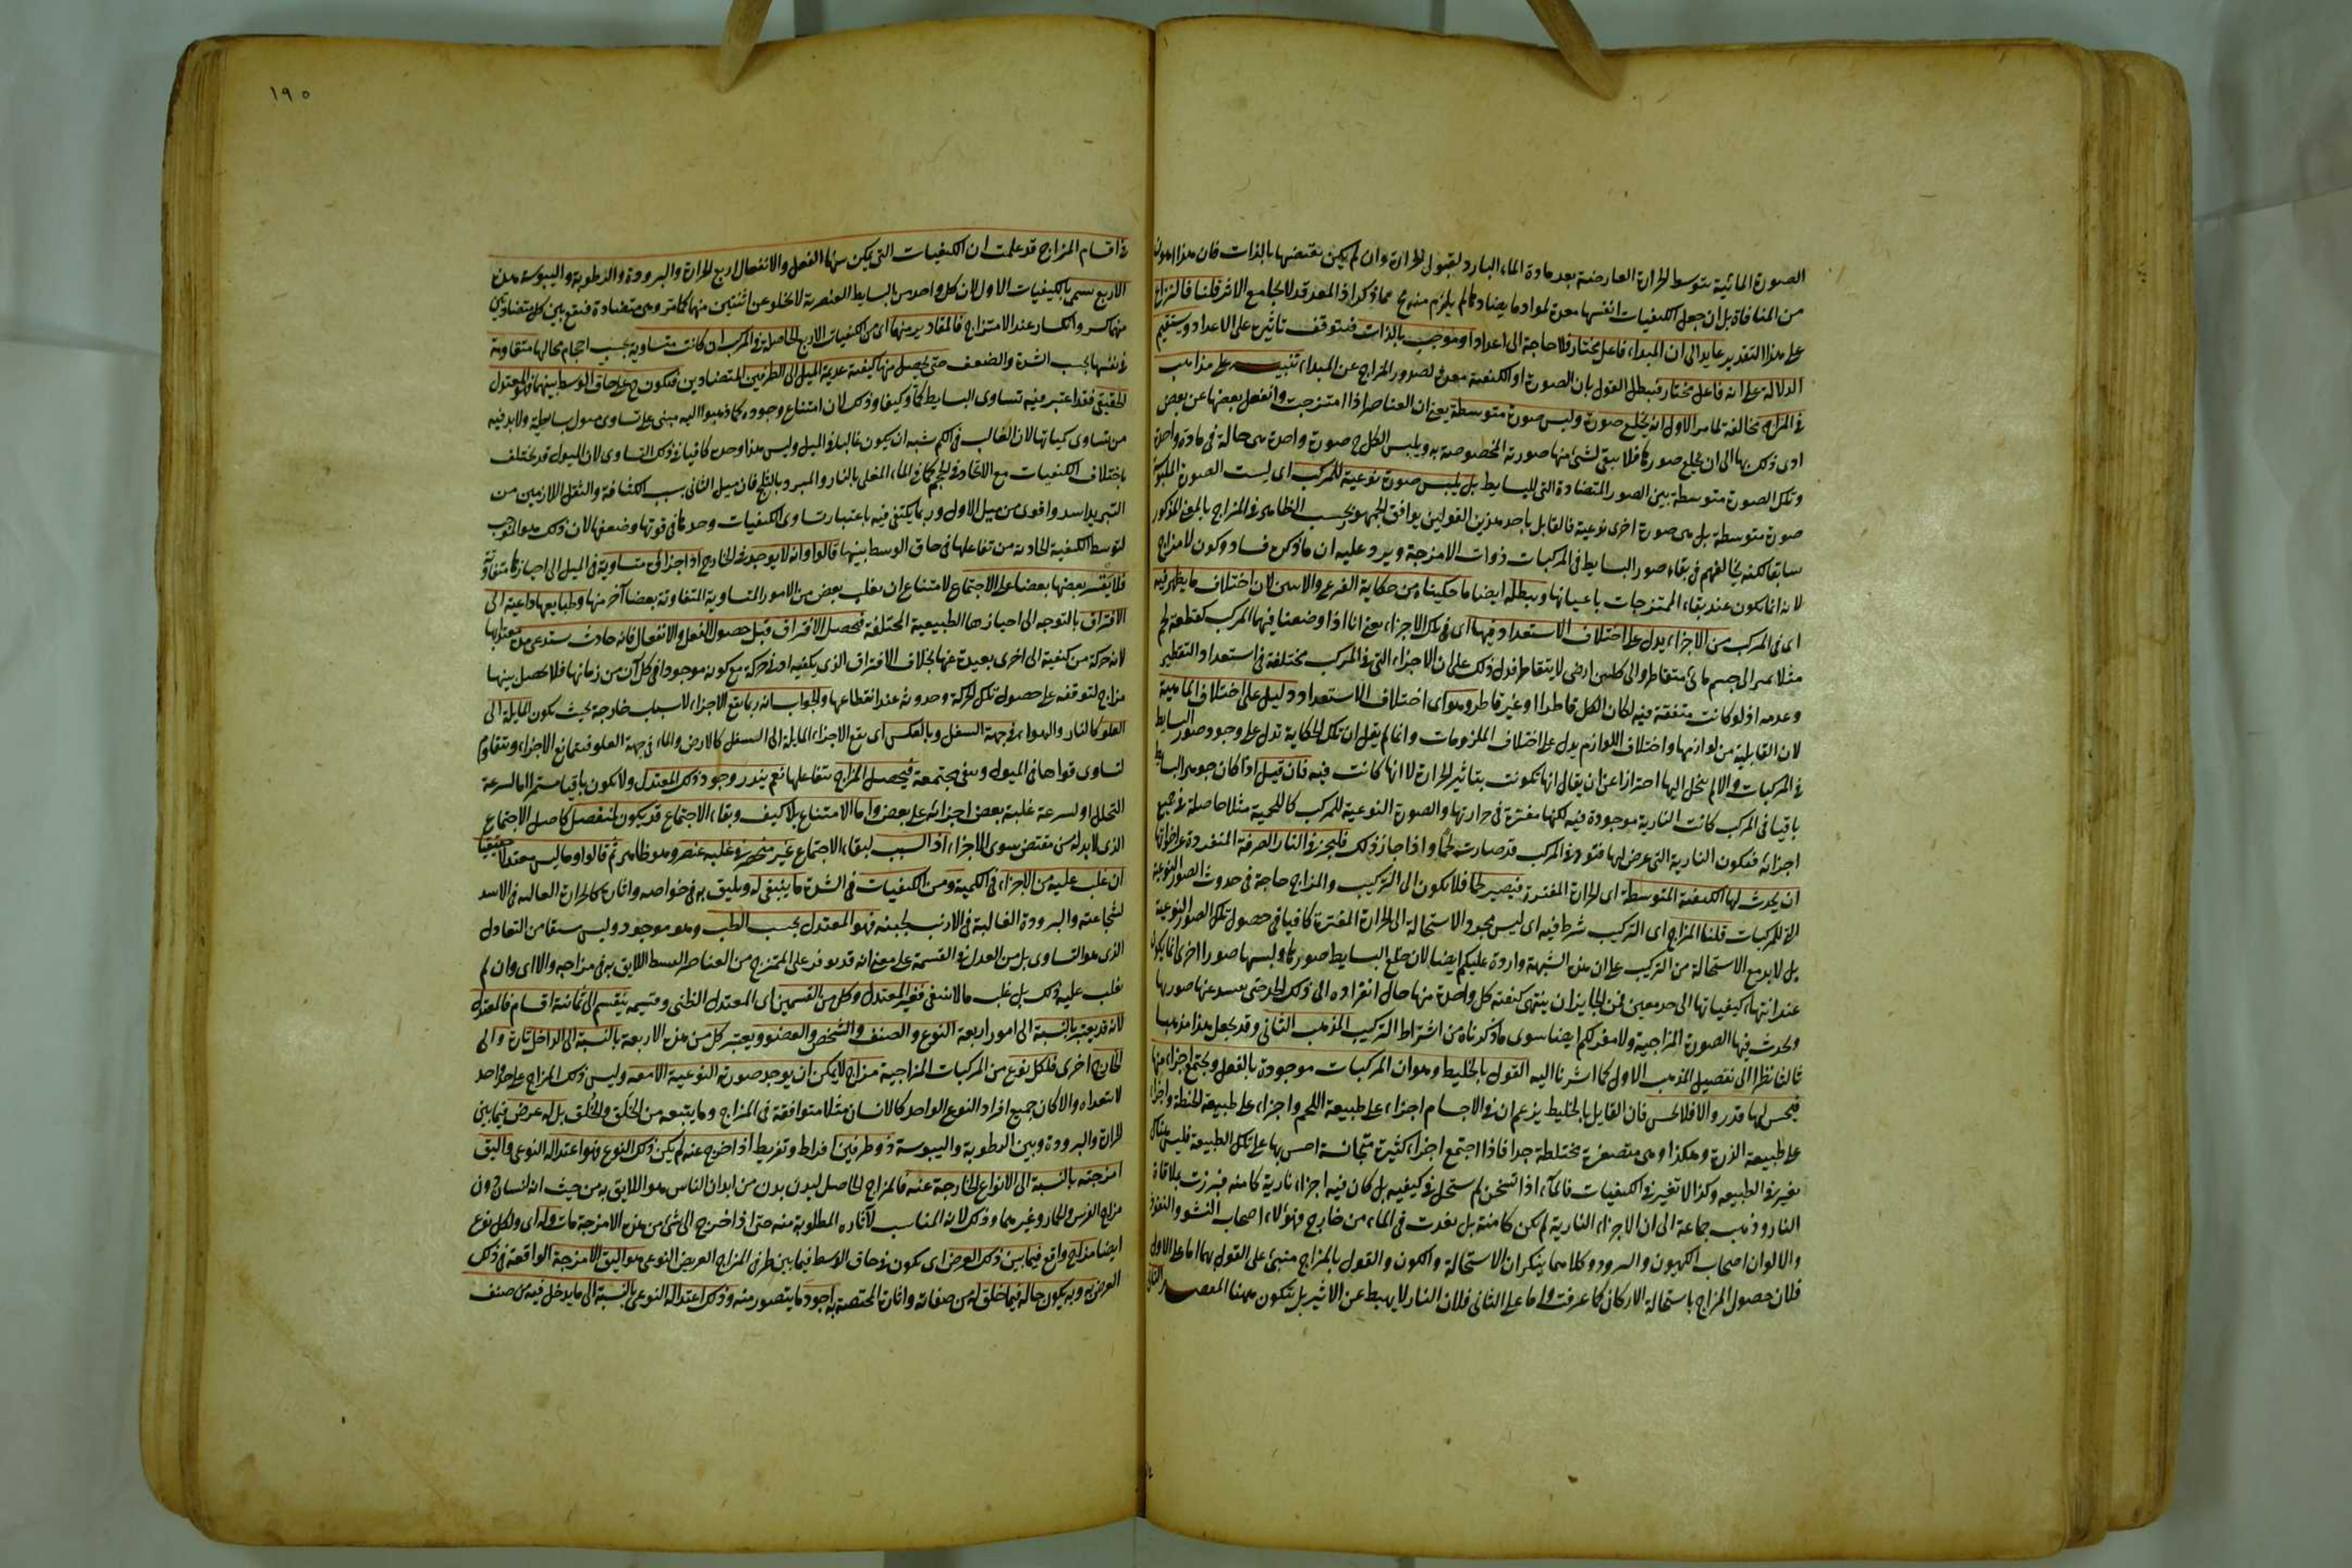 الصورة المائية بتوسط الحرارة العارضة بعد مادة الماء البارد لقبول الحرارة وان لم يكن يقتضيها بالذات فان هذا اهون
من المنافاة بل ان جعل الكيفيات انفسها معدة لموادها يضادها لم يلزم منه مح مما ذكر اذ المعد قد لا يجامع الاثر قلنا فالنزاع
على هذا التقدير عايد الى ان المبداء فاعل مختار فلا حاجة الى اعداد او موجب بالذات فيتوقف تاثيره على الاعداد ويستقيم
الدلالة على انه فاعل مختار فيبطل القول بان الصورة او الكيفية معدة لصدور المزاج عن المبداء تنبيه على مذاهب
في المزاج مخالفة لما مر الاول انه يخلع صورة ويلبس صورة متوسطة يعني ان العناصر اذا امتزجت وانفعل بعضها عن بعض
ادى ذلك بها الى ان يخلع صورها فلا يبقى لشئ منها صورته المخصوصة به ويلبس الكل ح صورة واحدة هي حالة في مادة واحدة
وتلك الصورة متوسطة بين الصور المتضادة التي للبسايط بل يلبس صورة نوعية للمركب اى ليست الصورة الملبوسة
صورة متوسطة بل هي صورة اخرى نوعية فالقايل باحد هذين القولين يوافق الجمهور بحسب الظاهر في المزاج بالمعنى المذكور
سابقا لكنه يخالفهم في بقاء صور البسايط في المركبات ذوات الامزجة ويرد عليه ان ما ذكره فساد وكون لا مزاج
لانه انما يكون عند بقاء الممتزجات باعيانها ويبطله ايضا ما حكيناه من حكاية القرع والانبيق لان اختلاف ما يظهر فيه
اى في المركب من الاجزاء يدل على اختلاف الاستعداد فيها اى في تلك الاجزاء يعني انا اذا وضعنا فيهما المركب كقطعة لحم
مثلا تميز الى جسم مائى متقاطر والى كلس ارضى لا يتقاطر فدل ذلك على ان الاجزاء التي في المركب مختلفة في استعداد التقطير
وعدمه اذ لو كانت متفقة فيه لكان الكل قاطرا او غير قاطر وهو اى اختلاف الاستعداد دليل على اختلاف الماهية
لان القابلية من لوازمها واختلاف اللوازم يدل على اختلاف الملزومات وانما لم يقل ان تلك الحكاية تدل على وجود صور البسايط
في المركبات والا لم ينحل اليها احترازا عن ان يقال انها تكونت بتاثير الحرارة لا انها كانت فيه فان قيل اذا كان جوهر البسايط
باقيا في المركب كانت النارية موجودة فيه لكنها مفترة في حرارتها والصورة النوعية للمركب كاللحمية مثلا حاصلة في جميع
اجزائه فيكون النارية التي عرض لها فتور في المركب قد صارت لحما واذا جاز ذلك فليجز في النار الصرفة المنفردة واخواتها
ان يحدث لها الكيفية المتوسطة اى الحرارة المفترة فيصير لحما فلا يكون الى التركيب والمزاج حاجة في حدوث الصور النوعية
التي للمركبات قلنا المزاج اى التركيب شرط فيه اى ليس مجرد الاستحالة الى الحرارة المفترة كافيا في حصول تلك الصور النوعية
بل لابد مع الاستحالة من التركيب على ان هذه الشبهة واردة عليكم ايضا لان خلع البسايط صورها ولبسها صورا اخرى انما يكون
عند انتهاء كيفياتها الى حد معين فمن الجايز ان ينتهى كيفية كل واحدة منها حال انفراده الى ذلك الحد حتى يفسد عنها صورها
ويحدث فيها الصورة المزاجية ولا مفر لكم ايضا سوى ما ذكرناه من اشتراط التركيب المذهب الثانى وقد يجعل هذا مذهبا
ثالثا نظرا الى تفصيل المذهب الاول كما اشرنا اليه القول بالخليط وهو ان المركبات موجودة بالفعل ويجتمع اجزاء منها
فيحس لها قدر والا فلا يحس فان القايل بالخليط يزعم ان في الاجسام اجزاء على طبيعة اللحم واجزاء على طبيعة الحنطة واجزاء
على طبيعة الذرة وهكذا وهي متصغرة مختلطة جدا فاذا اجتمع اجزاء كثيرة متجانسة احس بها على تلك الطبيعة فليس هناك
تغير في الطبيعة وكذا لا تغير في الكيفيات فالماء اذا تسخن لم يستحل في كيفيه بل كان فيه اجزاء نارية كامنة فبرزت بملاقاة
النار وذهب جماعة الى ان الاجزاء النارية لم تكن كامنة بل نفذت في الماء من خارج فهؤلاء اصحاب النشو والنفوذ
والاولون اصحاب الكمون والبروز وكلاهما ينكران الاستحالة والكون والقول بالمزاج مبني على القول بهما اما على الاول
فلان حصول المزاج باستحالة الاركان كما عرفت واما على الثاني فلان النار لا يهبط عن الاثير بل يتكون ههنا المقصد الثاني
١٩٠
في اقسام المزاج قد علمت ان الكيفيات التي يمكن بينها الفعل والانفعال اربع الحرارة والبرودة والرطوبة واليبوسة هذه
الاربع تسمى بالكيفيات الاول لان كل واحد من البسايط العنصرية لا يخلو عن اثنتين منها كما مر وهي متضادة فيقع بين كل متضادتين
منها كسر وانكسار عند الامتزاج فالمقادير منها اى من الكيفيات الاربع الحاصلة في المركب ان كانت متساوية بحسب احجام محالها متقاومة
في انفسها بحسب الشدة والضعف حتى يحصل منها كيفية عديمة الميل الى الطرفين المتضادين فيكون ح على حاق الوسط بينهما فهو المعتدل
الحقيقي فقد اعتبر فيه تساوى البسايط كما وكيفا وذلك لان امتناع وجوده كما ذهبوا اليه مبني على تساوى ميول بسايطه ولابد فيه
من تساوى كمياتها لان الغالب في الكم يشبه ان يكون غالبا في الميل وليس هذا وحده كافيا في ذلك التساوى لان الميول قد يختلف
باختلاف الكيفيات مع الاتحاد في الحجم كما في الماء المغلى بالنار والمبرد بالثلج فان ميل الثاني بسبب الكثافة والثقل اللازمين من
التبريد اشد واقوى من ميل الاول وربما يكتفى فيه باعتبار تساوى الكيفيات وحدها في قوتها وضعفها لان ذلك هو الموجب
لتوسط الكيفية الحادثة من تفاعلها في حاق الوسط بينها قالوا وانه لا يوجد في الخارج اذ اجزائه متساوية في الميل الى احيازها متفاوتة
فلا يقسر بعضها بعضا على الاجتماع لامتناع ان يغلب بعض من الامور المتساوية المتفاوتة بعضا آخر منها وطبايعها داعية الى
الافتراق بالتوجه الى احيازها الطبيعية المختلفة فيحصل الافتراق قبل حصول الفعل والانفعال فانه حادث يستدعى مدة بعد اجتماعها
لانه حركة من كيفية الى اخرى بعيدة عنها بخلاف الافتراق الذي يكفيه ادنى حركة مع كونه موجودا في كل آن من زمانها فلا يحصل بينها
مزاج لتوقفه على حصول تلك الحركة وحدوثه عند انقطاعها والجواب انه ربما يقع الاجزاء لاسباب خارجة بحيث يكون المايلة الى
العلو كالنار والهواء في جهة السفل وبالعكس اى يقع الاجزاء المايلة الى السفل كالارض والماء في جهة العلو فيتمانع الاجزاء ويتقاوم
لتساوى قواها في الميول ويبقى مجتمعة فيحصل المزاج بتفاعلها نعم يندر وجود ذلك المعتدل ولا يكون باقيا مستمرا اما لسرعة
التحلل او لسرعة غلبة بعض اجزائه على بعض واما الامتناع بلا كيف وبقاء الاجتماع قد يكون لمنفصل كاصل الاجتماع
الذي لابد له من مقتض سوى الاجزاء اذ السبب لبقاء الاجتماع غير منحصر في غلبة عنصر وهو ظاهر ثم قالوا وما ليس معتدلا حقيقيا
ان غلب عليه من الاجزاء في الكمية ومن الكيفيات في الشدة ما ينبغي له ويليق به في خواصه واثاره كالحرارة الغالبة في الاسد
لشجاعته والبرودة الغالبة في الارنب لجبنه فهو المعتدل بحسب الطب وهو موجود وليس مشتقا من التعادل
الذي هو التساوى بل من العدل في القسمة على معنى انه قد توفر على الممتزج من العناصر القسط اللايق به في مزاجه والا اى وان لم
يغلب عليه ذلك بل غلب ما لا ينبغي فغير المعتدل وكل من القسمين اى المعتدل الطبي وقسيمه ينقسم الى ثمانية اقسام فالمعتدل
لانه قد يعتبر بالنسبة الى امور اربعة النوع والصنف والشخص والعضو ويعتبر كل من هذه الاربعة بالنسبة الى الداخل تارة والى
الخارج اخرى فلكل نوع من المركبات المزاجية مزاج لا يمكن ان يوجد صورته النوعية الا معه وليس ذلك المزاج على حد واحد
لا يتعداه والا كان جميع افراد النوع الواحد كالانسان مثلا متوافقة في المزاج وما يتبعه من الخلق والخلق بل له عرض فيما بين
الحرارة والبرودة وبين الرطوبة واليبوسة ذو طرفين افراط وتفريط اذا خرج عنه لم يكن ذلك النوع فهو اعتداله النوعى واليق
امزجته بالنسبة الى الانواع الخارجة عنه فالمزاج الحاصل لبدن بدن من ابدان الناس هو اللايق به من حيث انه انسان دون
مزاج الفرس والحمار وغيرهما وذلك لانه المناسب لآثاره المطلوبة منه حتى اذا خرج الى شئ من هذه الامزجة مات وله اى ولكل نوع
ايضا مزاج واقع فيما بين ذلك العرض اى يكون في حاق الوسط فيما بين طرفي المزاج العريض النوعي هو اليق الامزجة الواقعة في ذلك
العرض به وبه يكون حاله فيما خلق له من صفاته واثاره المختصة به اجود ما يتصور منه وذلك اعتداله النوعي بالنسبة الى ما يدخل فيه من صنف